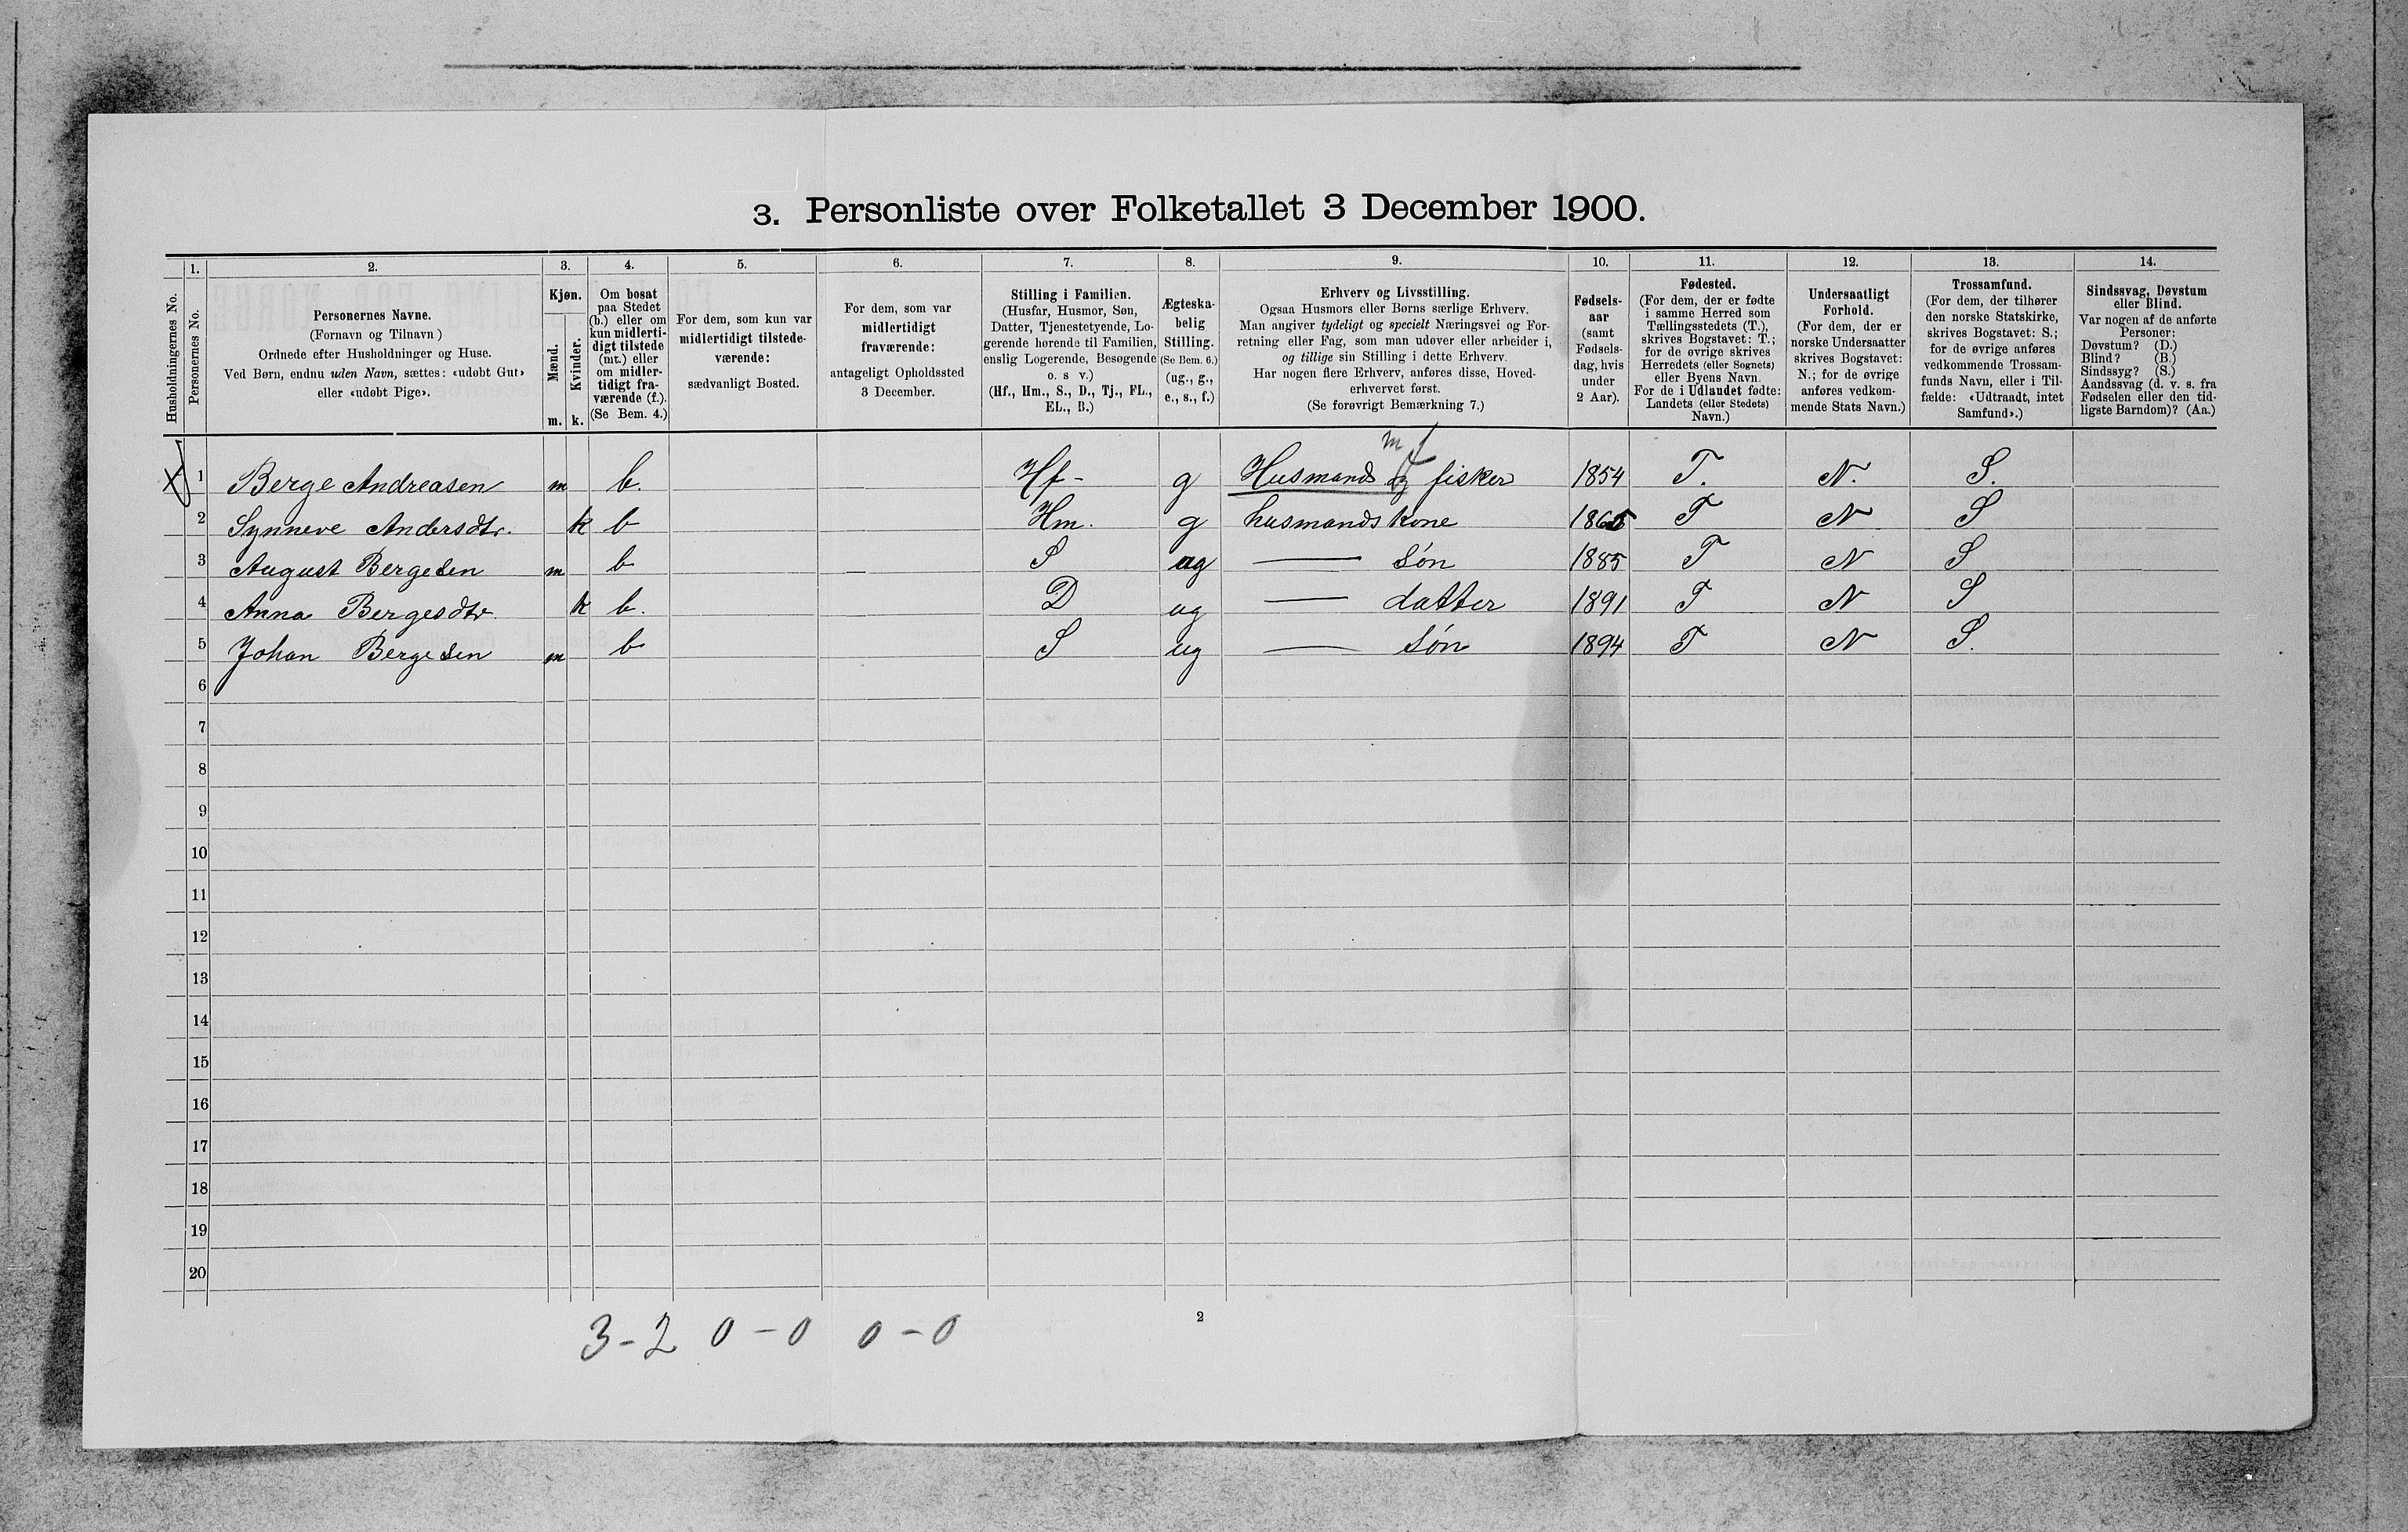 3. Personliste over Folketallet 3 December 1900.
1. 2. 3. 4. 5. 6. 7. 8. 9. 10. 11. 12. 13. 14.
Husholdningernes No.
Personernes No.
Personernes Navne.
(Fornavn og Tilnavn)
Ordnede efter Husholdninger og Huse.
Ved Børn, endnu uden Navn, sættes: «udøbt Gut»
eller «udøbt Pige».
Kjøn.
Mænd.
Kvinder.
m. k.
Om bosat
paa Stedet
(b.) eller om
kun midlerti-
digt tilstede
(mt.) eller
om midler-
tidigt fra-
værende (f.).
(Se Bem. 4.)
For dem, som kun var
midlertidigt tilstede-
værende:
sædvanligt Bosted.
For dem, som var
midlertidigt
fraværende:
antageligt Opholdssted
3 December.
Stilling i Familien.
(Husfar, Husmor, Søn,
Datter, Tjenestetyende, Lo-
gerende hørende til Familien,
enslig Logerende, Besøgende
o. s v.)
(Hf., Hm., S., D., Tj., FL.,
EL., B.)
Ægteska-
belig
Stilling.
(Se Bem. 6.)
(ug., g.,
e., s., f.)
Erhverv og Livsstilling.
Ogsaa Husmors eller Børns særlige Erhverv.
Man angiver tydeligt og specielt Næringsvei og For-
retning eller Fag, som man udøver eller arbeider i,
og tillige sin Stilling i dette Erhverv.
Har nogen flere Erhverv, anføres disse, Hoved-
erhvervet først.
(Se forøvrigt Bemærkning 7.)
Fødsels-
aar
(samt
Fødsels-
dag, hvis
under
2 Aar).
Fødested.
(For dem, der er fødte
i samme Herred som
Tællingsstedets (T.),
skrives Bogstavet: T.;
for de øvrige skrives
Herredets (eller Sognets)
eller Byens Navn.
For de i Udlandet fødte:
Landets (eller Stedets)
Navn.)
Undersaatligt
Forhold.
(For dem, der er
norske Undersaatter
skrives Bogstavet:
N.; for de øvrige
anføres vedkom-
mende Stats Navn.)
Trossamfund.
(For dem, der tilhører
den norske Statskirke,
skrives Bogstavet: S.;
for de øvrige anføres
vedkommende Trossam-
funds Navn, eller i Til-
fælde: «Udtraadt, intet
Samfund».)
Sindssvag, Døvstum
eller Blind.
Var nogen af de anførte
Personer:
Døvstum? (D.)
Blind? (B.)
Sindssyg? (S.)
Aandssvag (d. v. s. fra
Fødselen eller den tid-
ligste Barndom)? (Aa.)
1 Berge Andreasen m b. Hf- g Husmand og fisker 1854 T. N. S.
2 Synneve Andersdtr. k b Hm. g husmandskone 1865 T N S
3 August Bergesen m b S ug — søn 1885 T N S
4 Anna Bergesdtr. k b. D ug — datter 1891 T N S
5 Johan Bergesen m b S ug — søn 1894 T N S.
6
7
8
9
10
11
12
13
14
15
16
17
18
19
20
3-2 0-0 0-0
2